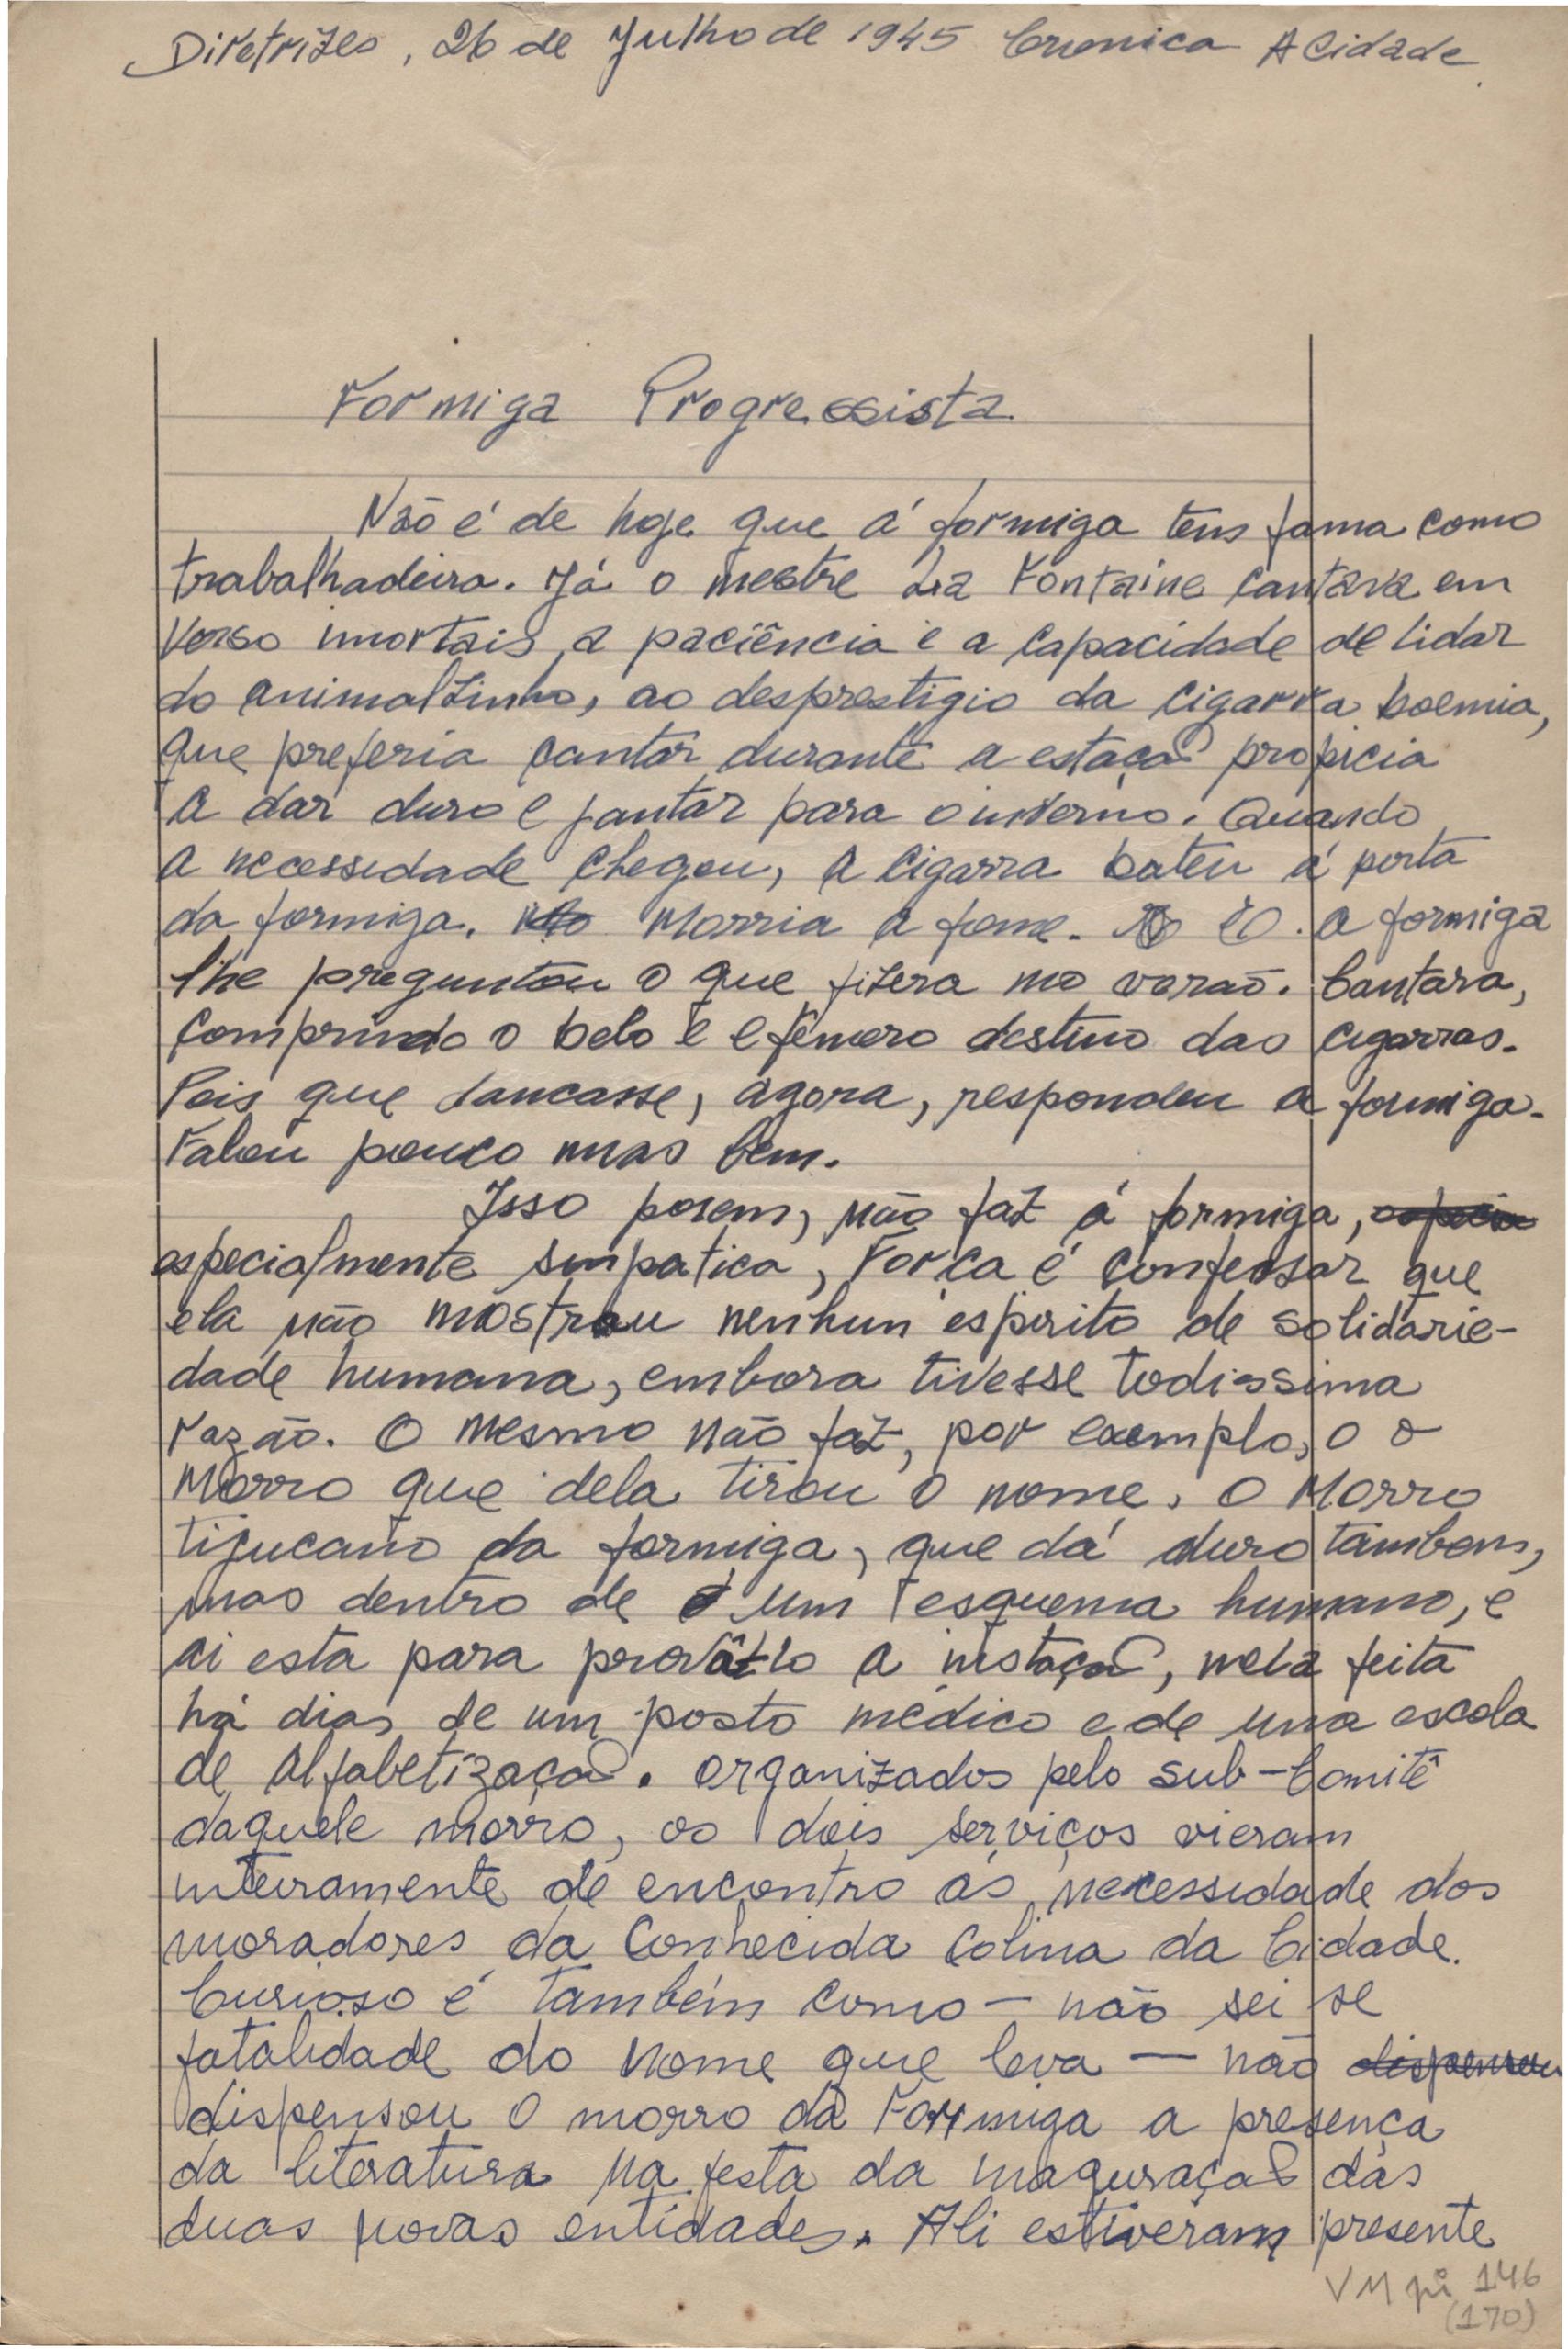 Diretrizes, 26 de Julho de 1945 Cronica A Cidade
Formiga Progressista
Não é de hoje que á formiga tens fama como
trabalhadeira. Já o mestre La Fontaine cantara em
verso imortais, a paciência e a capacidade de lidar
do animaltinho, ao desprestigio da cigarra boemia,
que preferia cantar durante a estação propicia
a dar duro e jantar para o inverno. Quando
a necessidade chegou, a cigarra bateu á porta
da formiga. Morria a fome. E a formiga
lhe preguntou o que fizera no varão. Cantara,
comprindo o belo e efêmero destino das cigarras.
Pois que dancasse, agora, respondeu a formiga.
Falou pouco mas bem.
Isso porem, não faz á formiga, especia
especialmente simpatica, Força é confessar que
ela não mostrou nenhun espirito de solidarie-
dade humana, embora tivesse todissima
razão. O mesmo não faz, por exemplo, o o
Morro que dela tirou o nome. O Morro
tijucano da formiga, que dá duro tambem,
mas dentro de um esquema humano, e
ai esta para prová-lo a instação, nela feita
há dias, de um posto médico e de uma escola
de alfabetização. organizados pelo sub-Comitê
daquele morro, os dois serviços vieram
inteiramente de encontro ás necessidade dos
moradores da Conhecida Colina da Cidade.
Curioso é também como — não sei se
fatalidade do nome que leva — não dispensou
dispensou o morro da Formiga a presença
da literatura na festa da inaguração das
duas novas entidades. Ali estiveram presente
VM pi 146
(170)